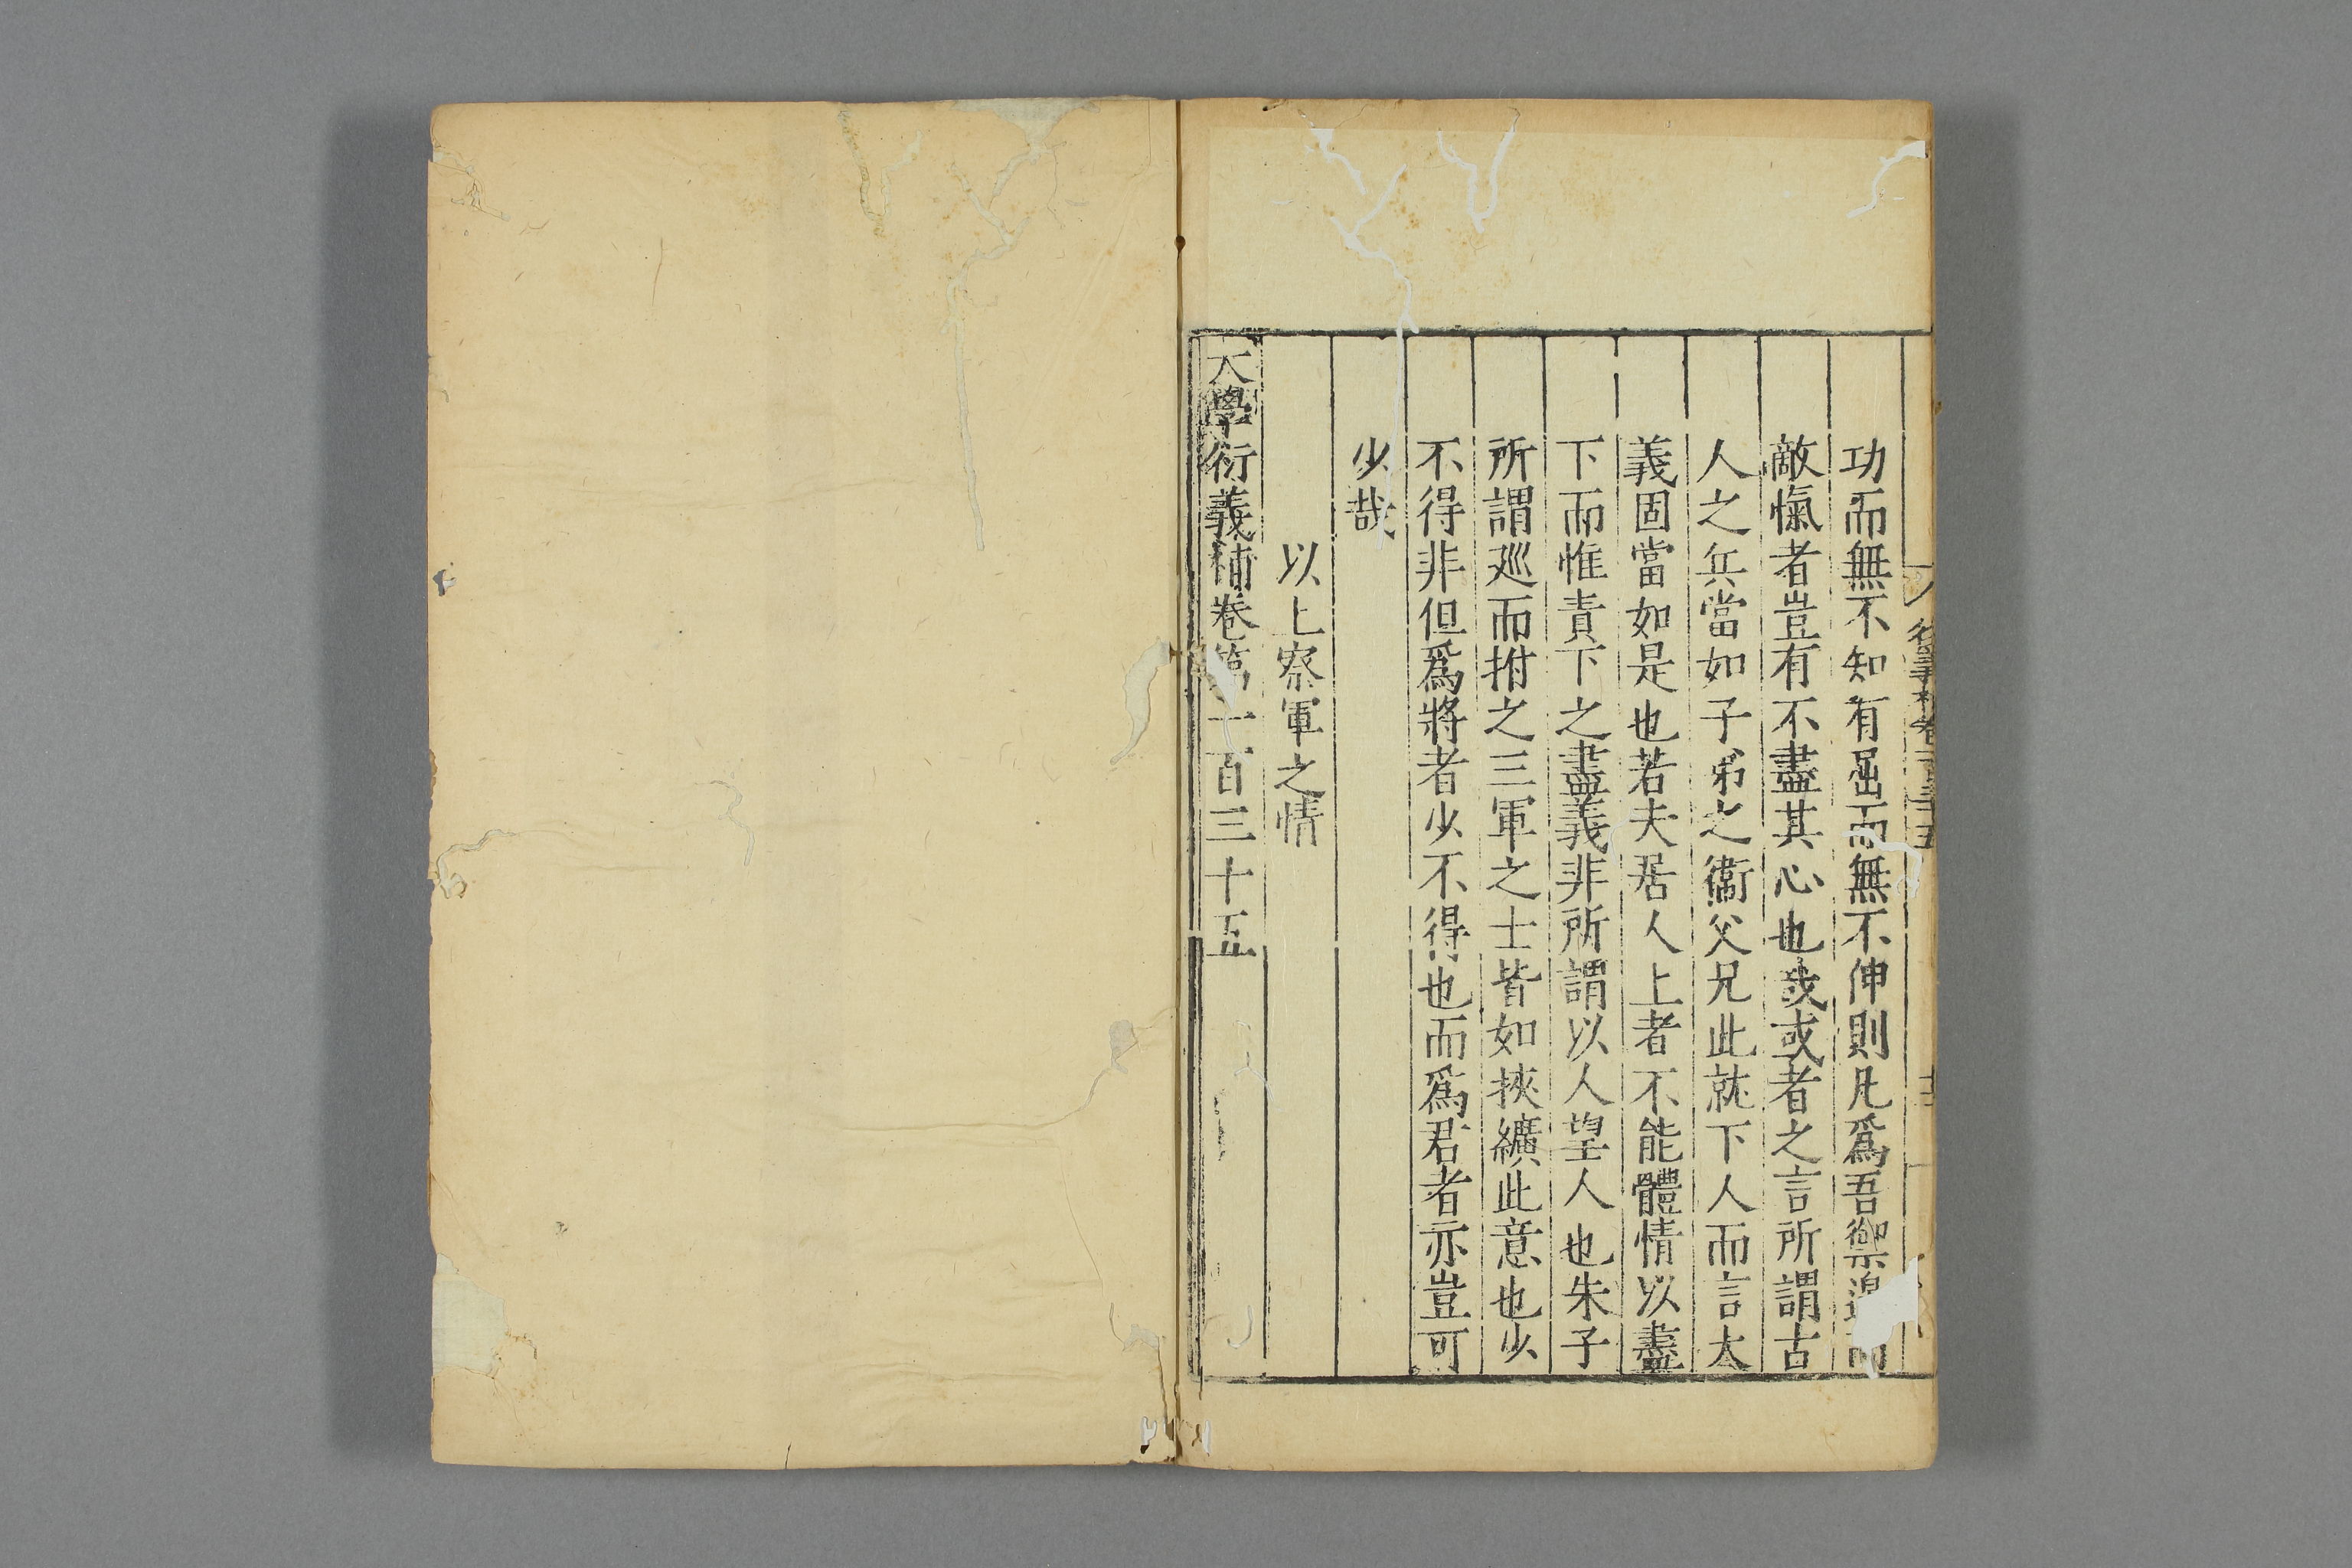 衍義補卷一百三十五
功而無不知有屈而無不伸則凡爲吾禦邊而
敵愾者豈有不盡其心也哉或者之言所謂古
人之兵當如子弟之衞父兄此就下人而言大
義固當如是也若夫居人上者不能體情以盡
下而惟責下之盡義非所謂以人望人也朱子
所謂廵而拊之三軍之士皆如挾纊此意也少
不得非但爲將者少不得也而爲君者亦豈可
少哉
以上察軍之情
大學衍義補卷第一百三十五